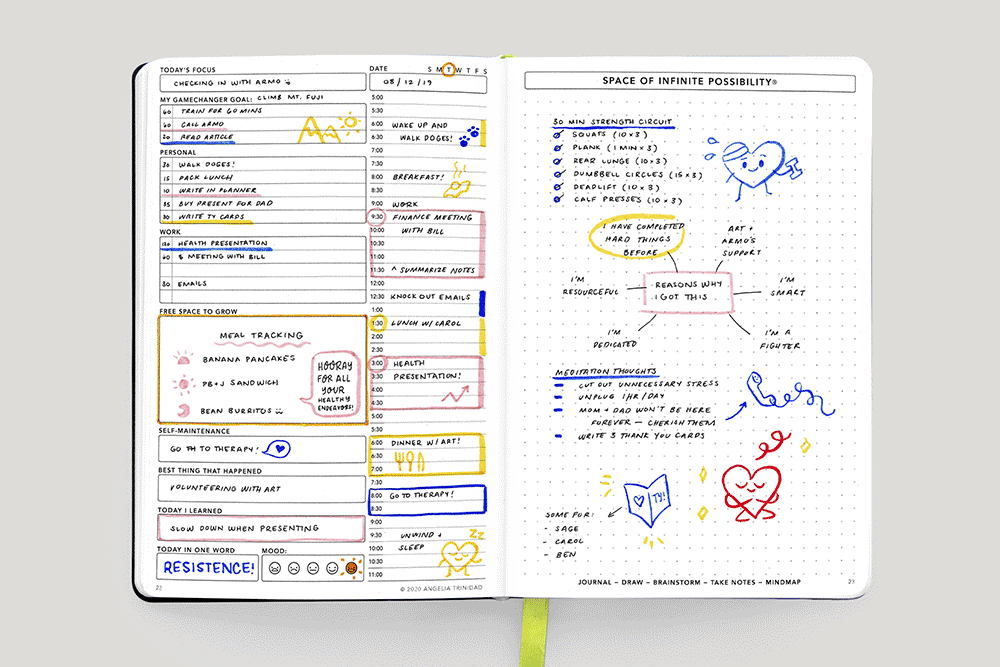 TODAY'S FOCUS
CHECKING IN WITH ARMO
MY GAMECHANGER GOAL: CLIMB MT. FUJI
60 TRAIN FOR 60 MINS
60 CALL ARMO
20 READ ARTICLE
PERSONAL
30 WALK DOGES!
15 PACK LUNCH
10 WRITE IN PLANNER
35 BUY PRESENT FOR DAD
30 WRITE TY CARDS
WORK
120 HEALTH PRESENTATION
60 $ MEETING WITH BILL
30 EMAILS
FREE SPACE TO GROW
MEAL TRACKING
BANANA PANCAKES
PB+J SANDWICH
BEAN BURRITOS
HOORAY
FOR ALL
YOUR
HEALTHY
ENDEAVORS!
SELF-MAINTENANCE
GO TO THERAPY!
BEST THING THAT HAPPENED
VOLUNTEERING WITH ART
TODAY I LEARNED
SLOW DOWN WHEN PRESENTING
TODAY IN ONE WORD
RESISTENCE!
MOOD:
DATE S M T W T F S
08 / 12 / 19
5:00
5:30
6:00 WAKE UP AND
6:30 WALK DOGES!
7:00
7:30
8:00 BREAKFAST!
8:30
9:00 WORK
9:30 FINANCE MEETING
10:00 WITH BILL
10:30
11:00
11:30 ^ SUMMARIZE NOTES
12:00
12:30 KNOCK OUT EMAILS
1:00
1:30 LUNCH W/ CAROL
2:00
2:30
3:00 HEALTH
3:30 PRESENTATION!
4:00
4:30
5:00
5:30
6:00 DINNER W/ ART!
6:30
7:00
7:30
8:00 GO TO THERAPY!
8:30
9:00
9:30 UNWIND +
10:00 SLEEP
10:30
11:00
ZZ
22
© 2020 ANGELIA TRINIDAD
SPACE OF INFINITE POSSIBILITY®
30 MIN STRENGTH CIRCUIT
SQUATS (10 x 3)
PLANK (1 MIN x 3)
REAR LUNGE (10 x 3)
DUMBBELL CIRCLES (15 x 3)
DEADLIFT (10 x 3)
CALF PRESSES (10 x 3)
I HAVE COMPLETED
HARD THINGS
BEFORE
ART +
ARMO'S
SUPPORT
I'M
RESOURCEFUL
REASONS WHY
I GOT THIS
I'M
SMART
I'M
DEDICATED
I'M A
FIGHTER
MEDITATION THOUGHTS
CUT OUT UNNECESSARY STRESS
UNPLUG 1 HR / DAY
MOM + DAD WON'T BE HERE
FOREVER — CHERISH THEM
WRITE 3 THANK YOU CARDS
TY!
SOME FOR:
- SAGE
- CAROL
- BEN
JOURNAL – DRAW – BRAINSTORM – TAKE NOTES – MINDMAP